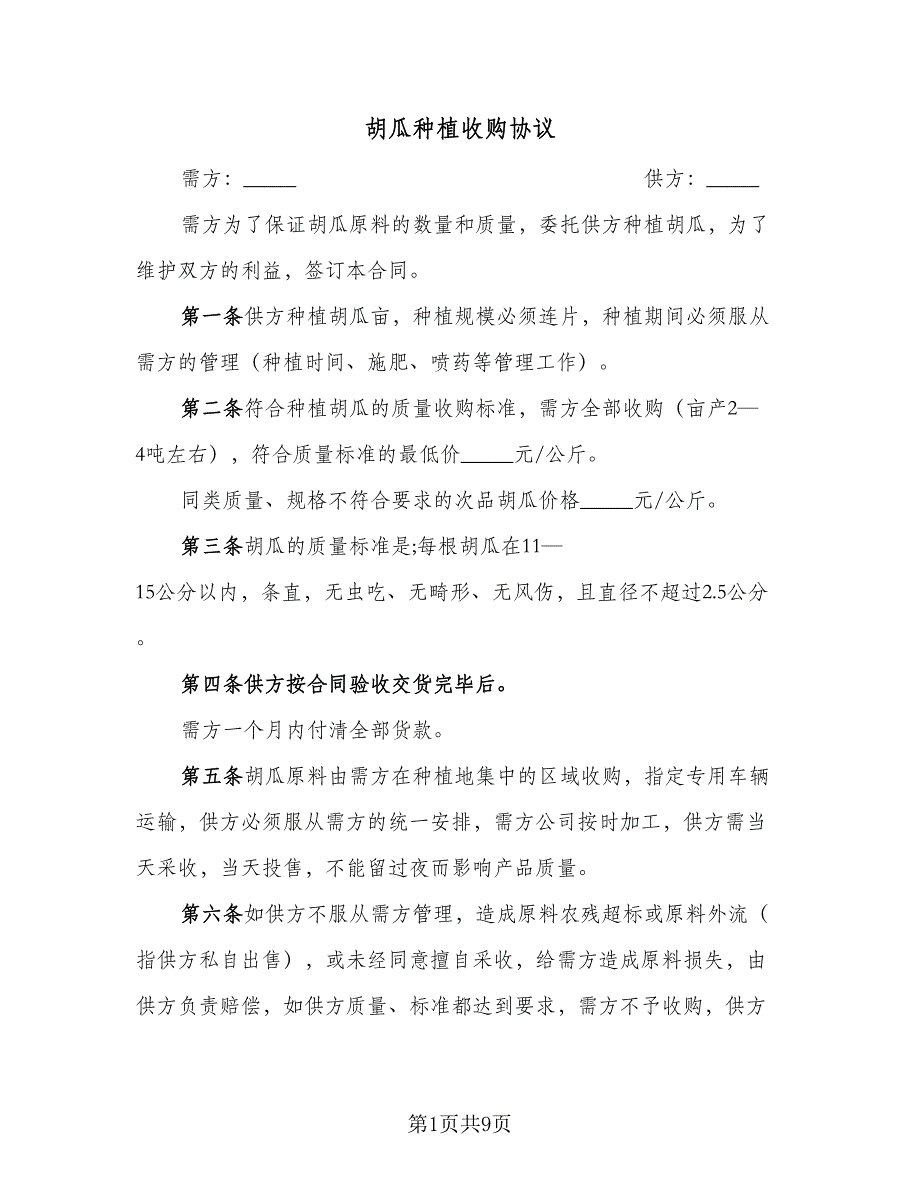 胡瓜种植收购协议
需方：_____ 供方：_____
需方为了保证胡瓜原料的数量和质量，委托供方种植胡瓜，为了
维护双方的利益，签订本合同。
第一条供方种植胡瓜亩，种植规模必须连片，种植期间必须服从
需方的管理（种植时间、施肥、喷药等管理工作）。
第二条符合种植胡瓜的质量收购标准，需方全部收购（亩产2—
4吨左右），符合质量标准的最低价_____元/公斤。
同类质量、规格不符合要求的次品胡瓜价格_____元/公斤。
第三条胡瓜的质量标准是;每根胡瓜在11—
15公分以内，条直，无虫吃、无畸形、无风伤，且直径不超过2.5公分
。
第四条供方按合同验收交货完毕后。
需方一个月内付清全部货款。
第五条胡瓜原料由需方在种植地集中的区域收购，指定专用车辆
运输，供方必须服从需方的统一安排，需方公司按时加工，供方需当
天采收，当天投售，不能留过夜而影响产品质量。
第六条如供方不服从需方管理，造成原料农残超标或原料外流（
指供方私自出售），或未经同意擅自采收，给需方造成原料损失，由
供方负责赔偿，如供方质量、标准都达到要求，需方不予收购，供方
第1页共9页